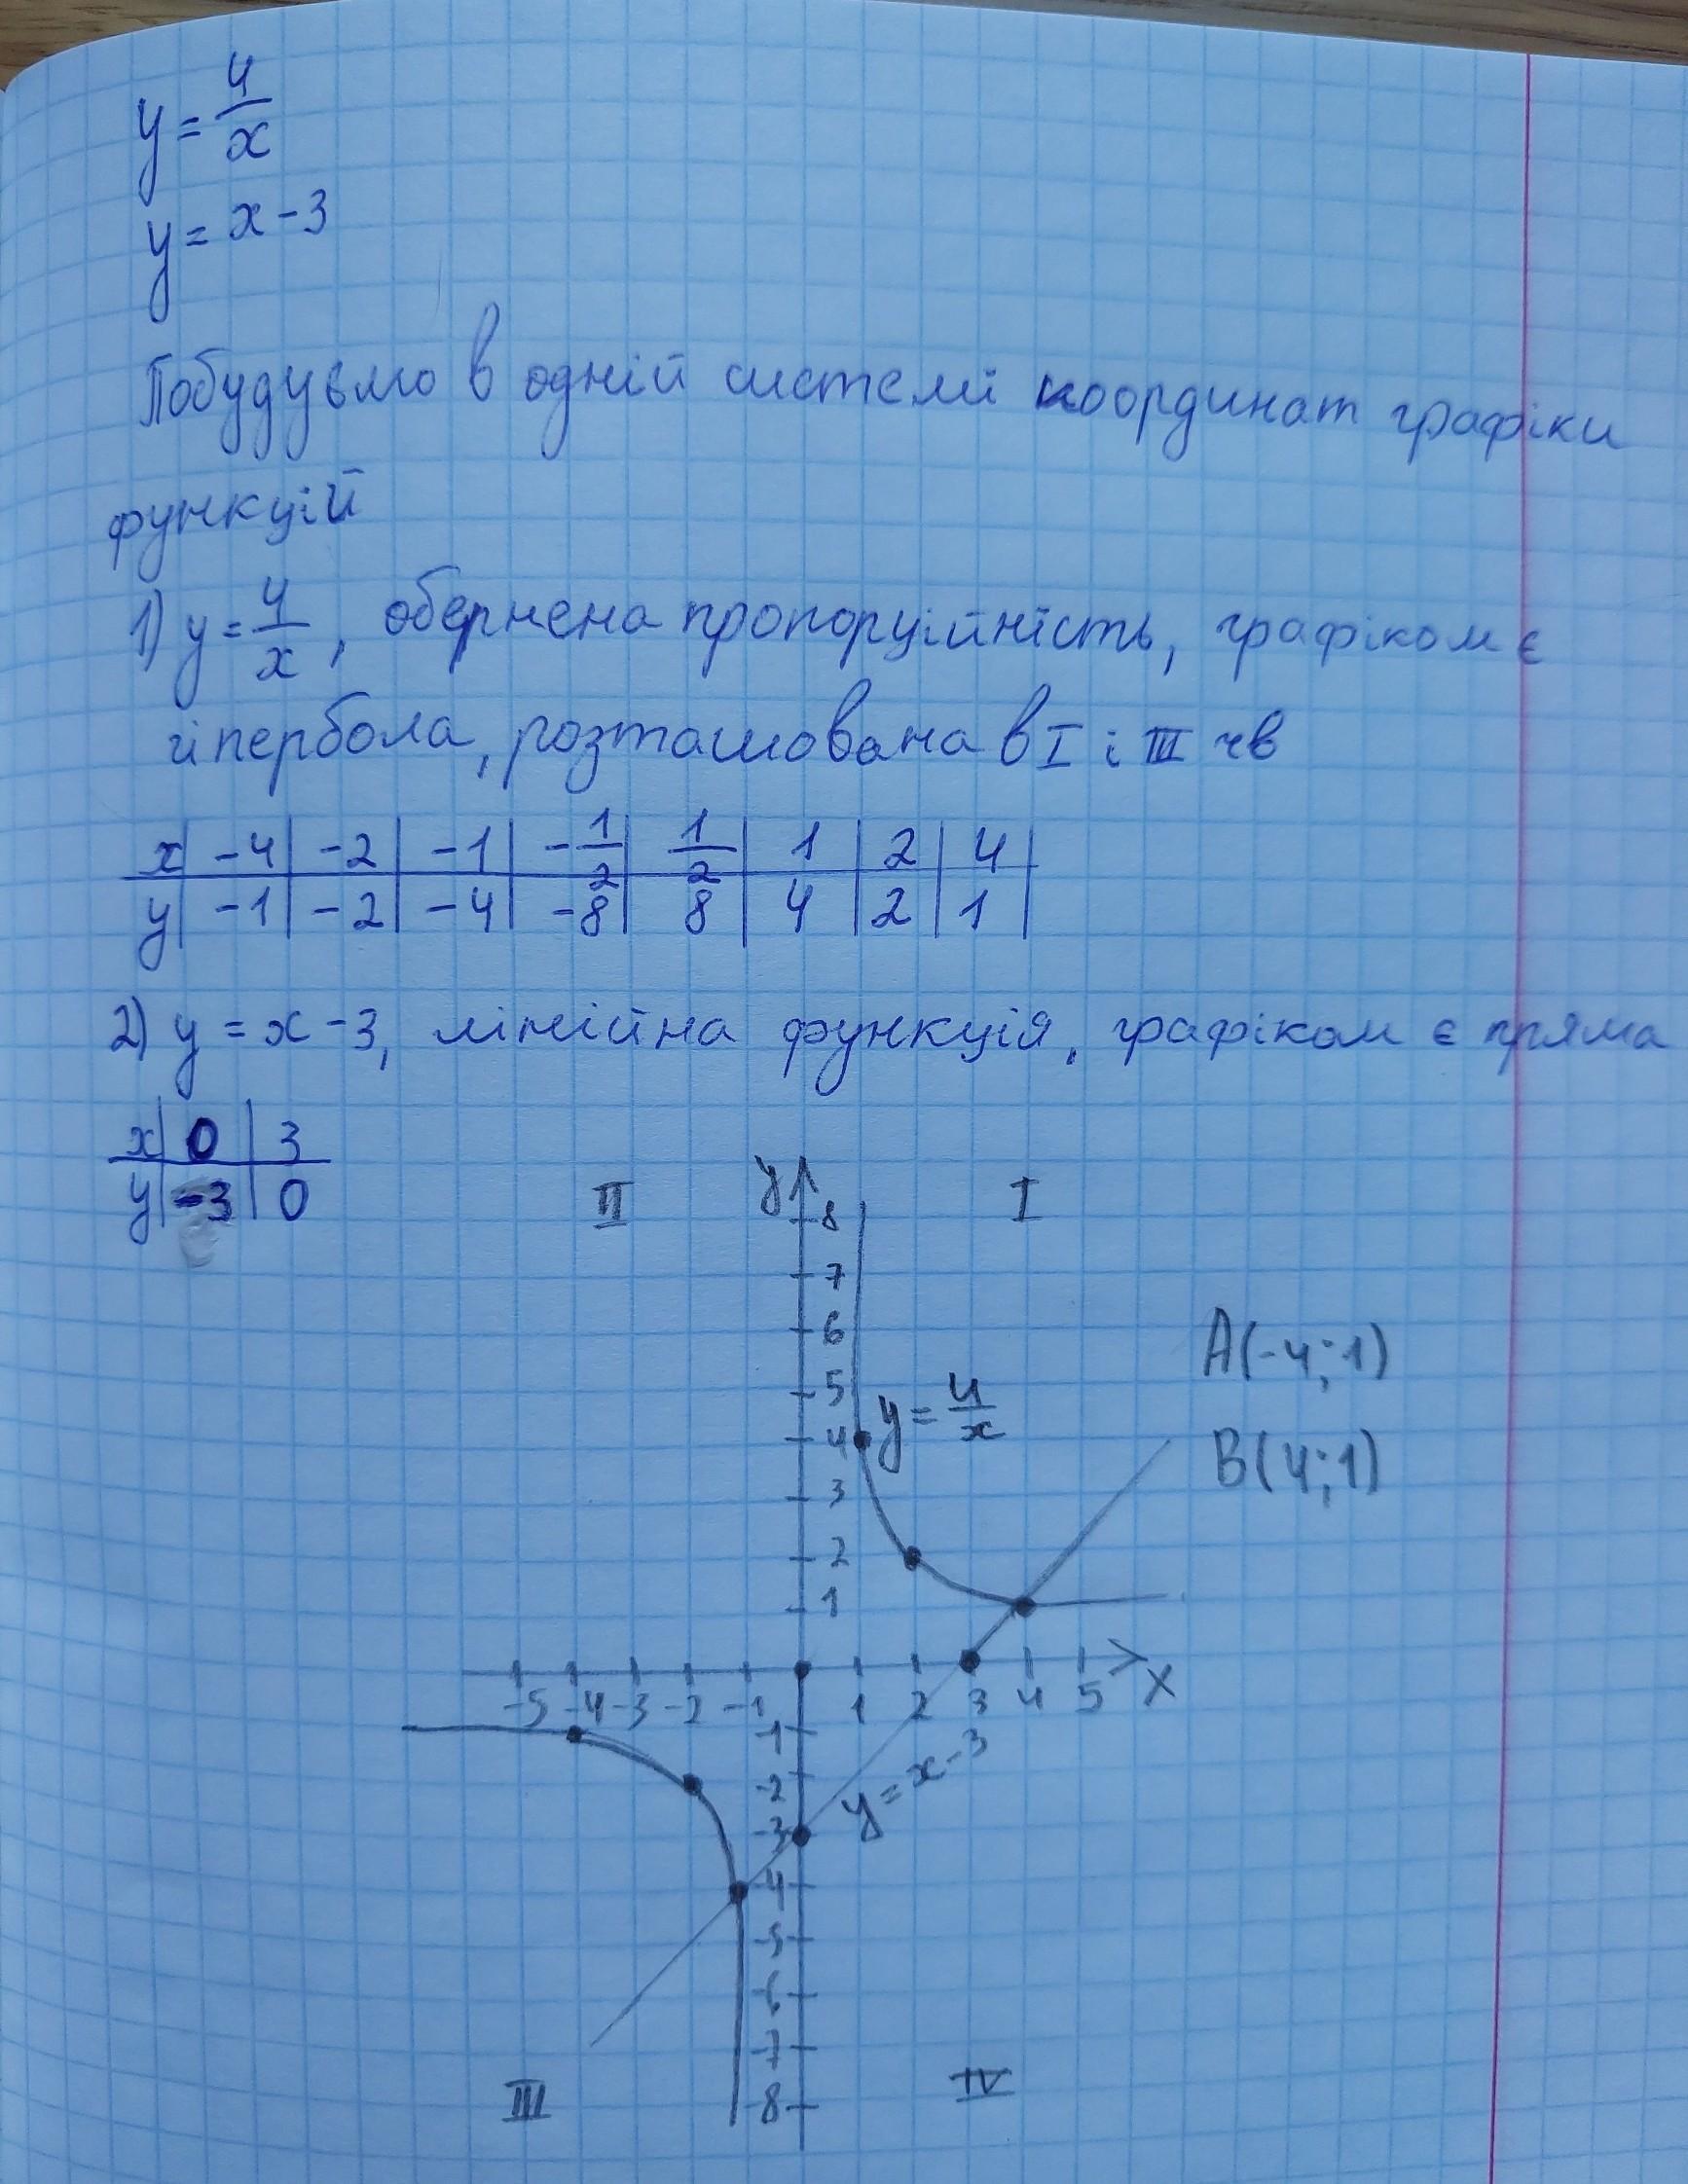 y = 4/x
y = x - 3
Побудуємо в одній системі координат графіки
функцій
1) y = 4/x, обернена пропорційність, графіком є
гіпербола, розташована в I і III чв
x | -4 | -2 | -1 | -1/2 | 1/2 | 1 | 2 | 4 |
y | -1 | -2 | -4 | -8 | 8 | 4 | 2 | 1 |
2) y = x - 3, лінійна функція, графіком є пряма
x | 0 | 3
y | -3 | 0
II y I
8
7
6
5
4
3
2
1
y = 4/x
A(-4;1)
B(4;1)
-5 -4 -3 -2 -1 1 2 3 4 5 x
-1
-2
-3
-4
-5
-6
-7
-8
y = x - 3
III IV